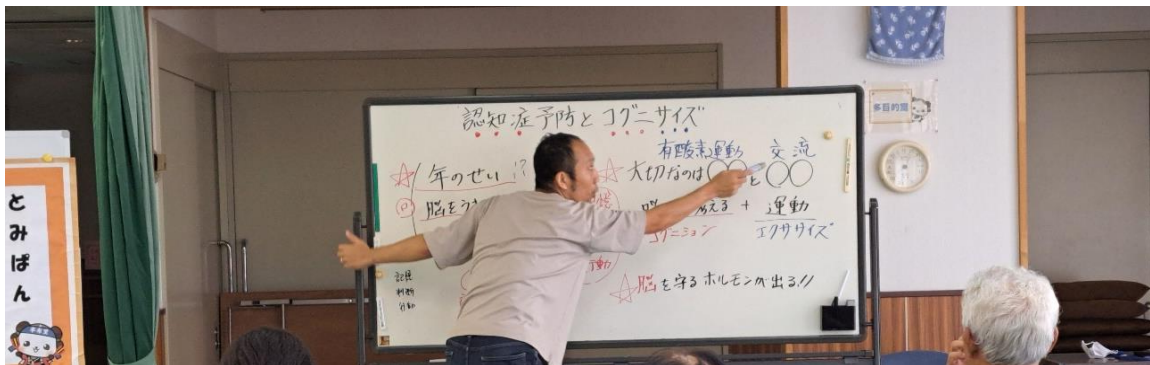 認知症予防とコグニサイズ
有酸素運動 交流
☆ 年のせい!?
☆ 大切なのは○○と○○
脳をう
考える + 運動
エクササイズ
記憶
判断
行動
動
☆脳を守るホルモンが出る!!
多目的室
とみぱん